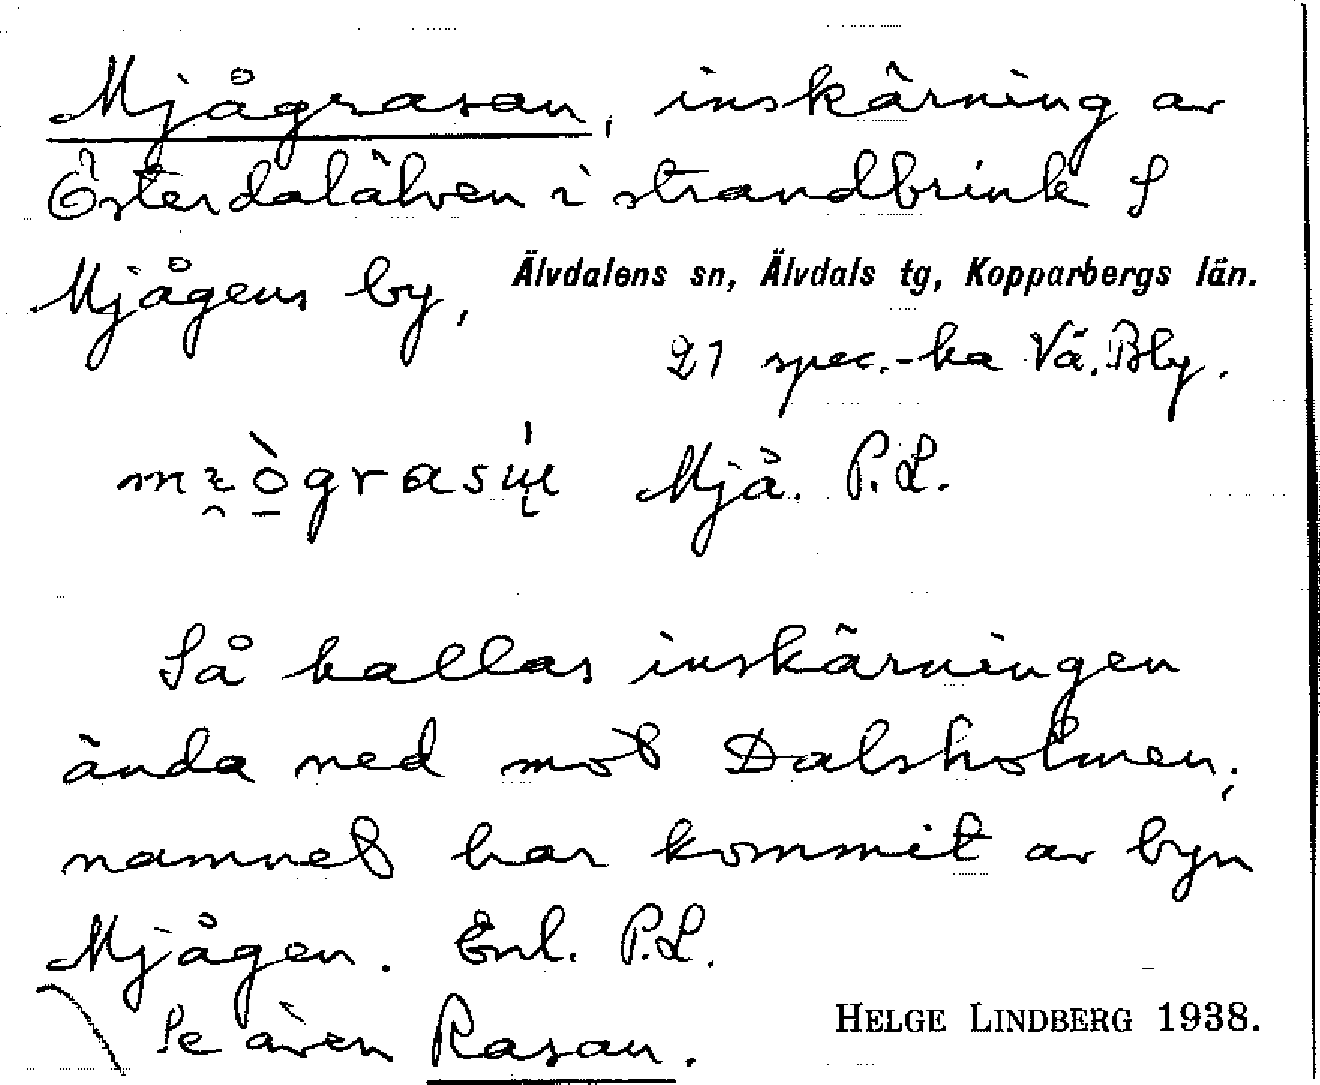 Mjågrasan, inskärning av
Österdalälven i strandbrink S
Mjågens by, Älvdalens sn, Älvdals tg, Kopparbergs län.
21 spec.-ka Vä. Bly.
Mjå. P.L.
Så kallas inskärningen
ända ned mot Dalsholmen;
namnet har kommit av byn
Mjågen. Enl. P.L.
Se även Rasan.
HELGE LINDBERG 1938.